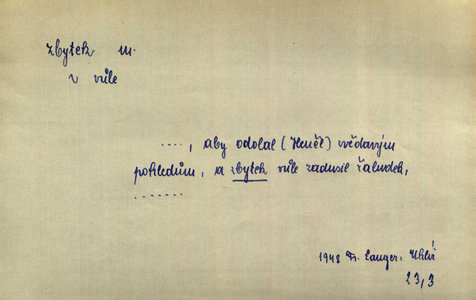 zbytek m.
v vůle
....., aby odolal (Heněl) zvědavým
pohledům, a zbytek vůle zadusil žaludek,
.......
1948 Fr. Langer,
23,3